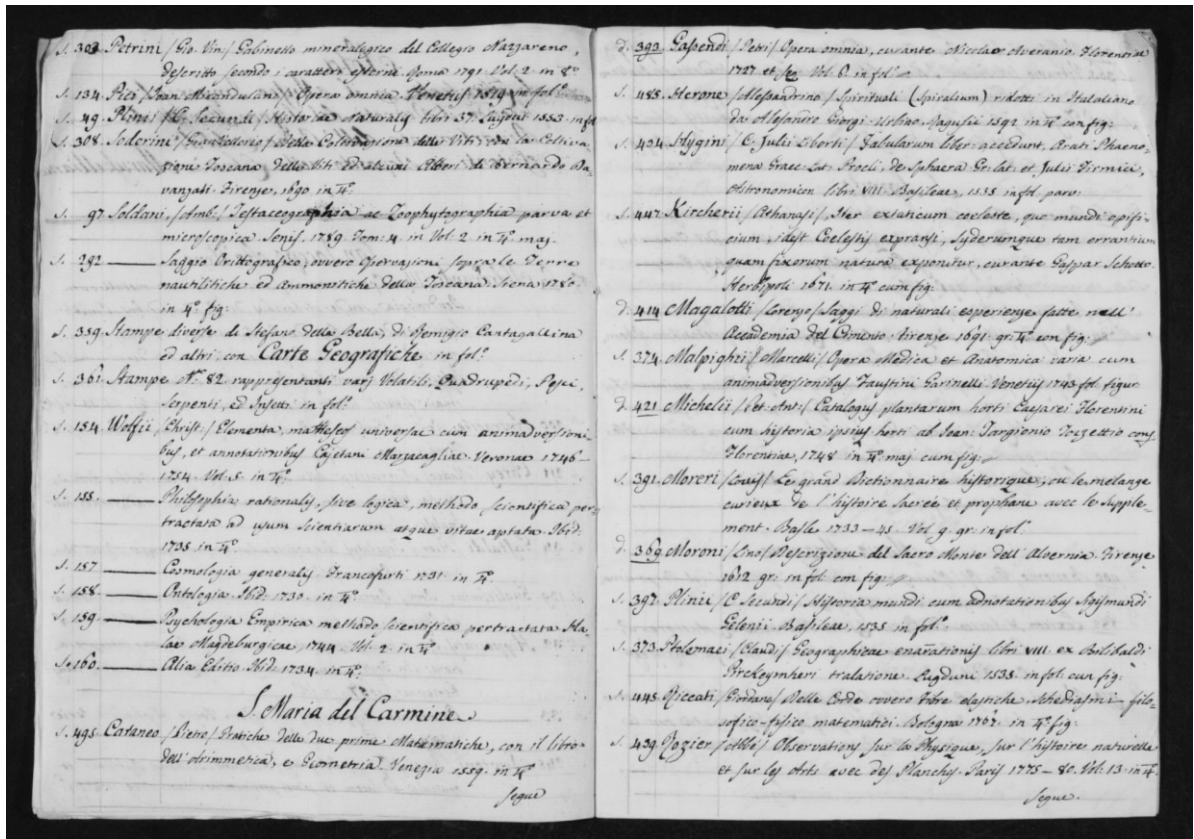 s. 302 Petrini /Gio. Vin:/ Gabinetto mineralogico del Collegio Nazzareno,
descritto secondo i caratteri esterni. Roma 1791. Vol. 2. in 8º
s. 134. Pici /Joan: Mirandulani/ Opera omnia. Venetiis 1519. in folº
s. 49. Plini /C. Secundi/ Historiae Naturalis libri 37. Lugduni 1553. in fol
s. 308. Soderini /Gianvettorio/ Della Coltivazione delle Viti, con la Coltiva-
zione Toscana delle Viti ed alcuni Alberi di Bernardo Da-
vanzati. Firenze, 1690 in 4º.
s. 97 Soldani /Amb:/ Testaceographia ac Zoophytographia parva et
microscopica. Senis. 1789. Tom: 4. in Vol. 2. in 4º. maj.
s. 292 ——— Saggio Orittografico, ovvero Osservazioni sopra le Terre
nautilitiche ed ammonitiche della Toscana. Siena 1780.
in 4º. fig:
s. 359. Stampe diverse di Stefano della Bella, di Remigio Cantagallina
ed altri con Carte Geografiche in folº
s. 361. Stampe Nº. 82. rappresentanti varj Volatili, Quadrupedi, Pesci,
Serpenti, ed Insetti in folº
s. 154 Wolfii /Christ:/ Elementa matheseos universae cum animadversioni-
bus, et annotationibus Cajetani Marzacagliae. Veronae 1746-
1754. Vol. 5. in 4º.
s. 155. ——— Philosophia rationalis, sive logica, methodo scientifica per-
tractata ad usum scientiarum atque vitae aptata. Ibid:
1735. in 4º.
s. 157 ——— Cosmologia generalis. Francofurti 1731. in 4º.
s. 158. ——— Ontologia. Ibid: 1730. in 4º.
s. 159. ——— Psychologia Empirica methodo scientifica pertractata. Ha-
lae Magdeburgicae, 1744. Vol. 2. in 4º
s. 160. ——— Alia Editio. Ibid: 1734. in 4º.
S. Maria del Carmine
s. 495. Cataneo /Pietro/ Pratiche delle due prime Matematiche, con il libro
dell'Arimmetica, e Geometria. Venezia 1559. in 4º
segue
d. 393. Gassendi /Petri/ Opera omnia, curante Nicolao Averanio. Florentiae
1727. et seq. Vol. 6. in folº
s. 485. Herone /Alessandrino/ Spirituali (Spiralium) ridotti in Italiano
da Alesandro Giorgi Urbino. Ragusii 1592. in 4º. con fig:
s. 424. Hygini /C. Julii Liberti/ Fabularum liber: accedunt, Arati Phaeno-
mena Graec. Lat. Procli, de Sphaera Gr. lat. et Julii Firmici,
Astronomicon libri VIII. Basileae, 1535 in fol. parv:
s. 447. Kircherii /Athanasi/ Iter extaticum coeleste, quo mundi opifi-
cium, idest Coelestis expransi, Syderumque tam errantium
quam fixorum natura exponitur, curante Gaspar Schotto.
Herbipoli 1671. in 4º cum fig:
d. 414. Magalotti /Lorenzo/ Saggi di naturali esperienze fatte nell'
Accademia del Cimento. Firenze 1691. gr. 4º. con fig:
s. 374. Malpighii /Marcelli/ Opera Medica et Anatomica varia cum
animadversionibus Faustini Garinelli. Venetiis 1743. fol. figur.
d. 421 Michelii /Pet: Ant:/ Catalogus plantarum horti Caesarei Florentini
cum historia ipsius horti ab Joan: Targionio Tozzettio cons.
Florentiae, 1748 in 4º. maj. cum fig:
s. 391. Moreri /Louis/ Le grand Dictionnaire historique, ou le melange
curieux de l'histoire sacrée et prophane avec le Supple-
ment. Basle 1733-45. Vol. 9. gr: in folº
d. 369. Moroni /Lino/ Descrizione del Sacro Monte dell'Alvernia. Firenze
1612. gr: in fol. con fig:
s. 397. Plinii /C. Secundi/ Historia mundi cum adnotationibus Sigismundi
Gelenii. Basileae, 1535 in folº.
s. 373. Ptolemaei /Claudi/ Geographicae enarrationis libri VIII. ex Bilibaldi
Pirckeymheri tralatione. Lugduni 1535. in fol: cum fig:
s. 445. Riccati /Giordano/ Delle Corde ovvero Fibre elastiche, Schediasmi filo-
sofico-fisico matematici. Bologna 1767. in 4º. fig:
s. 439. Rozier /Abbé/ Observations sur la Physique, sur l'histoire naturelle
et sur les Arts avec des Planches. Paris 1775-80. Vol: 13. in 4º.
segue.